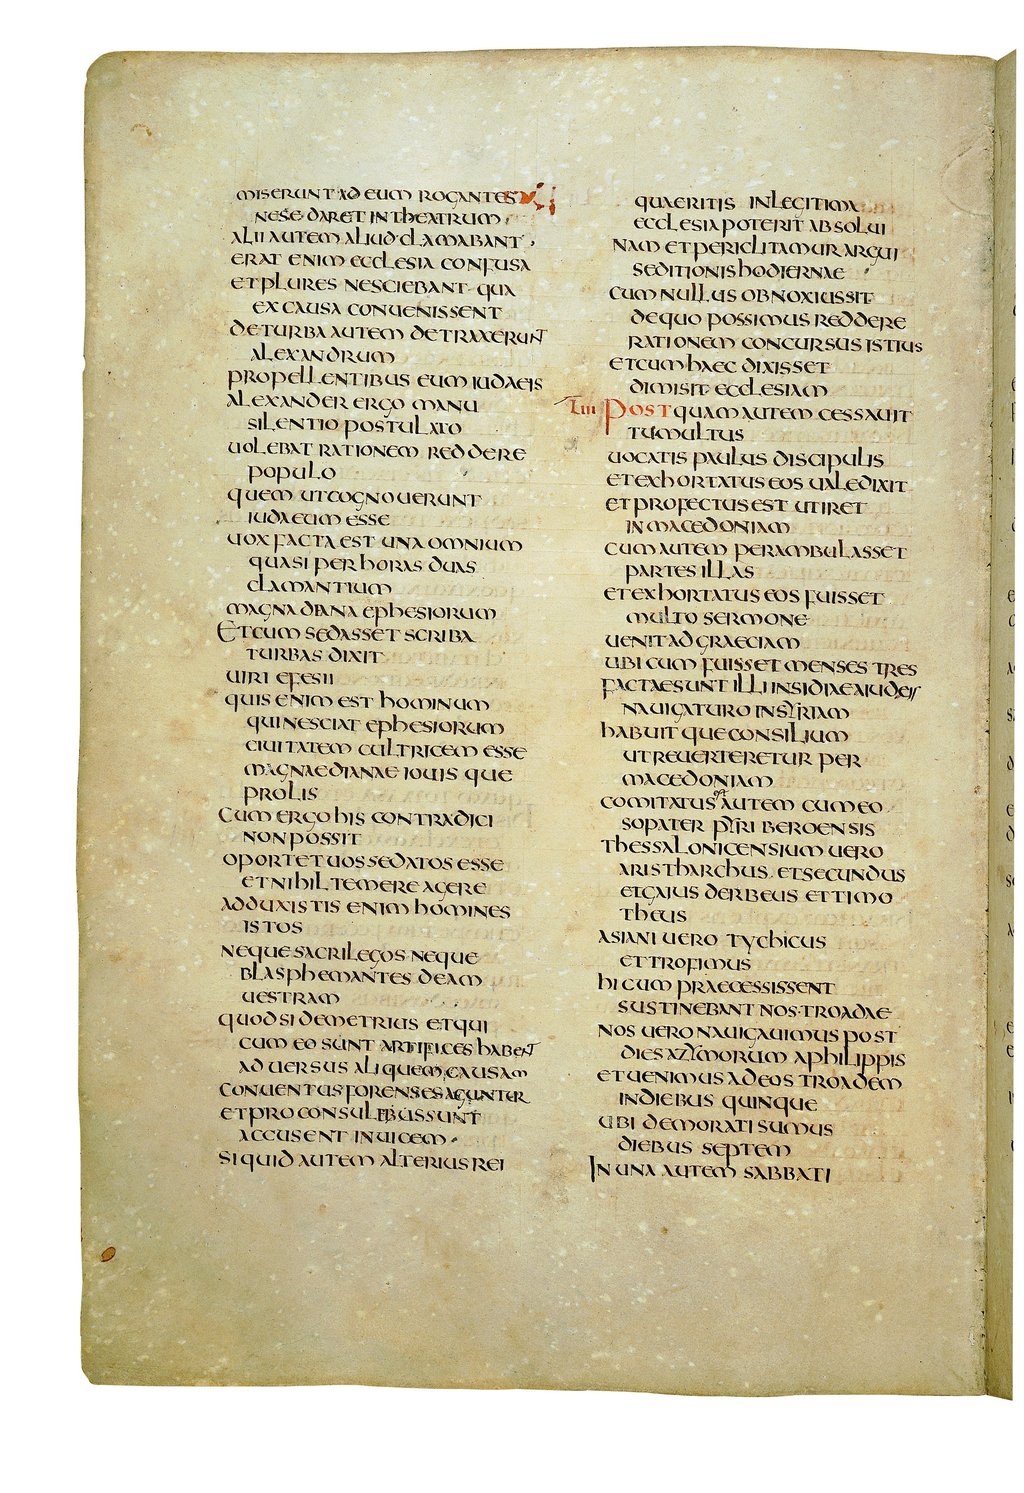 miserunt ad eum rogantes
ne se daret in theatrum
alii autem aliud clamabant
erat enim ecclesia confusa
et plures nesciebant qua
ex causa conuenissent
de turba autem detraxerunt
alexandrum
propellentibus eum iudaeis
alexander ergo manu
silentio postulato
uolebat rationem reddere
populo
quem ut cognouerunt
iudaeum esse
uox facta est una omnium
quasi per horas duas
clamantium
magna diana ephesiorum
Et cum sedasset scriba
turbas dixit
uiri efesii
quis enim est hominum
qui nesciat ephesiorum
ciuitatem cultricem esse
magnae dianae iouis que
prolis
Cum ergo his contradici
non possit
oportet uos sedatos esse
et nihil temere agere
adduxistis enim homines
istos
neque sacrilegos neque
blasphemantes deam
uestram
quod si demetrius et qui
cum eo sunt artifices habent
aduersus aliquem causam
conuentus forenses aguntur
et proconsulibus sunt
accusent inuicem
si quid autem alterius rei
quaeritis in legitima
ecclesia poterit absolui
nam et periclitamur argui
seditionis hodiernae
cum nullus obnoxius sit
de quo possimus reddere
rationem concursus istius
et cum haec dixisset
dimisit ecclesiam
Liii Postquam autem cessauit
tumultus
uocatis paulus discipulis
et exhortatus eos ualedixit
et profectus est ut iret
in macedoniam
cum autem perambulasset
partes illas
et exhortatus eos fuisset
multo sermone
uenit ad graeciam
ubi cum fuisset menses tres
factae sunt illi insidiae a iudeis
nauigaturo in syriam
habuitque consilium
ut reuerteretur per
macedoniam
comitatus est autem cum eo
sopater pyri beroensis
thessalonicensium uero
aristharchus et secundus
et gaius derbeus et timo
theus
asiani uero tychicus
et trofimus
hi cum praecessissent
sustinebant nos troadae
nos uero nauigauimus post
dies azymorum a philippis
et uenimus ad eos troadem
in diebus quinque
ubi demorati sumus
diebus septem
In una autem sabbati